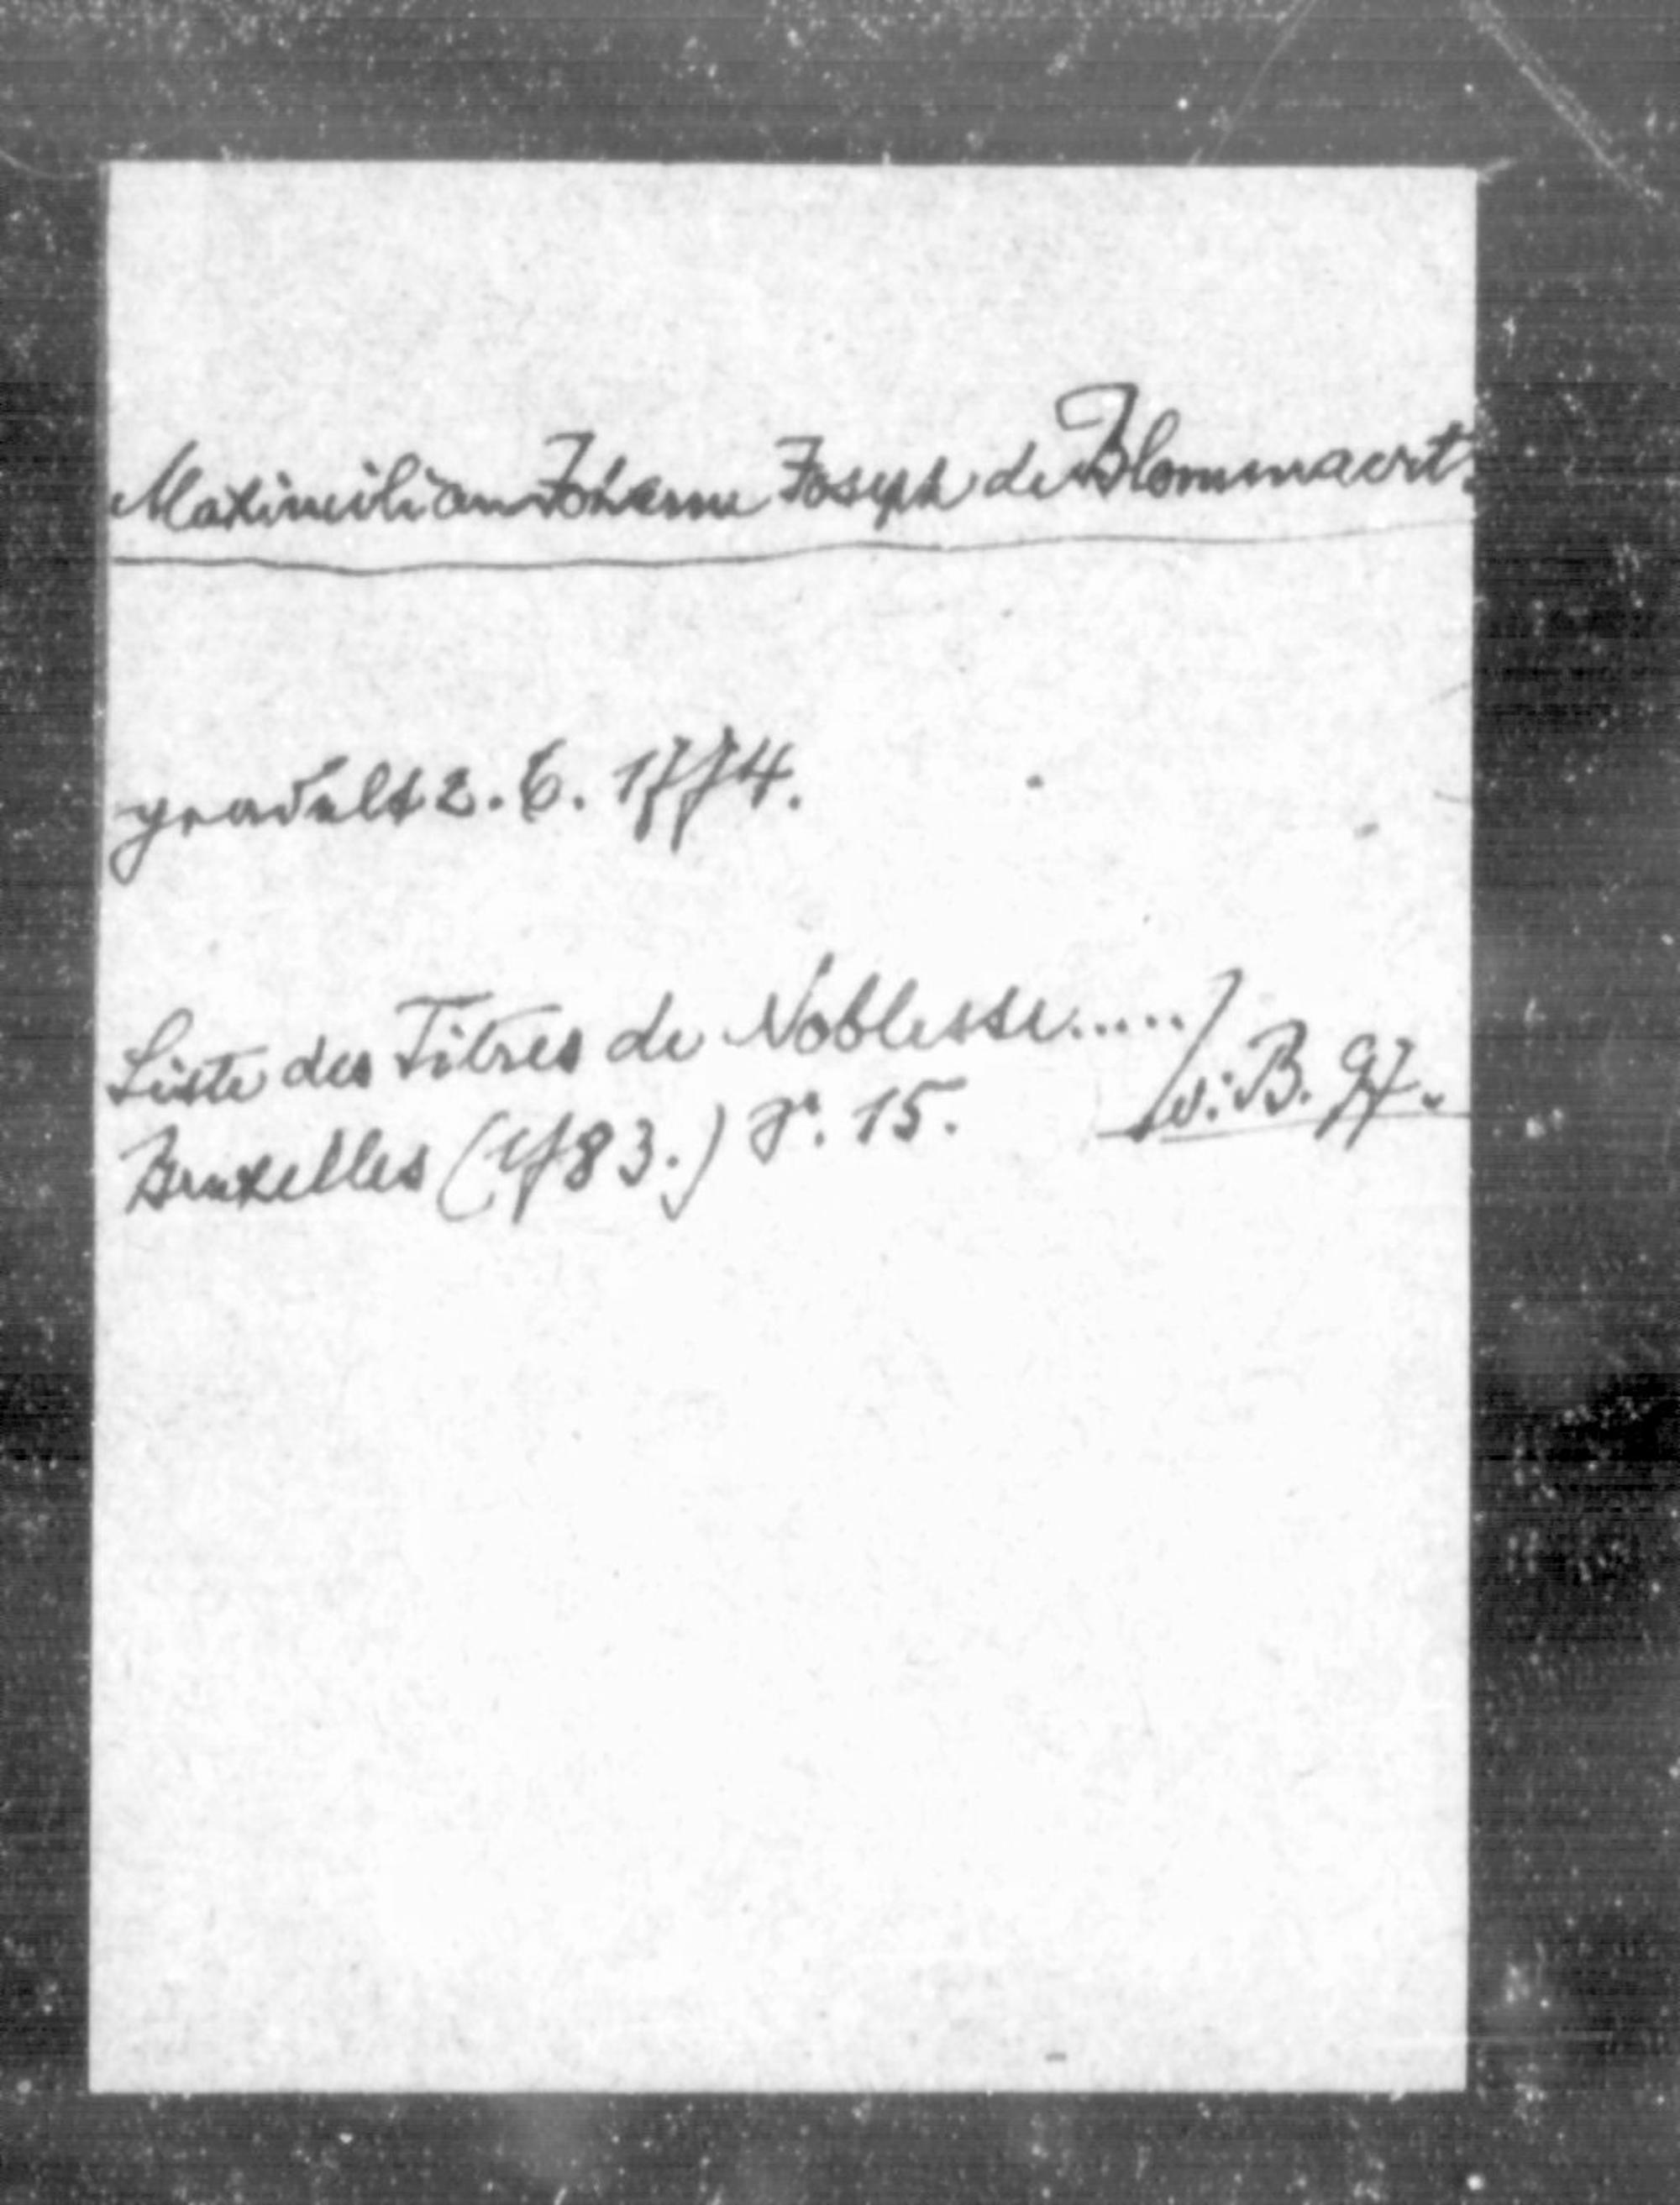 Maximilian Johann Joseph de Blommaert.
geadelt 2. 6. 1774.
Liste des Titres de Noblesse.....
Bruxelles (1783.) 15.
B. 97.